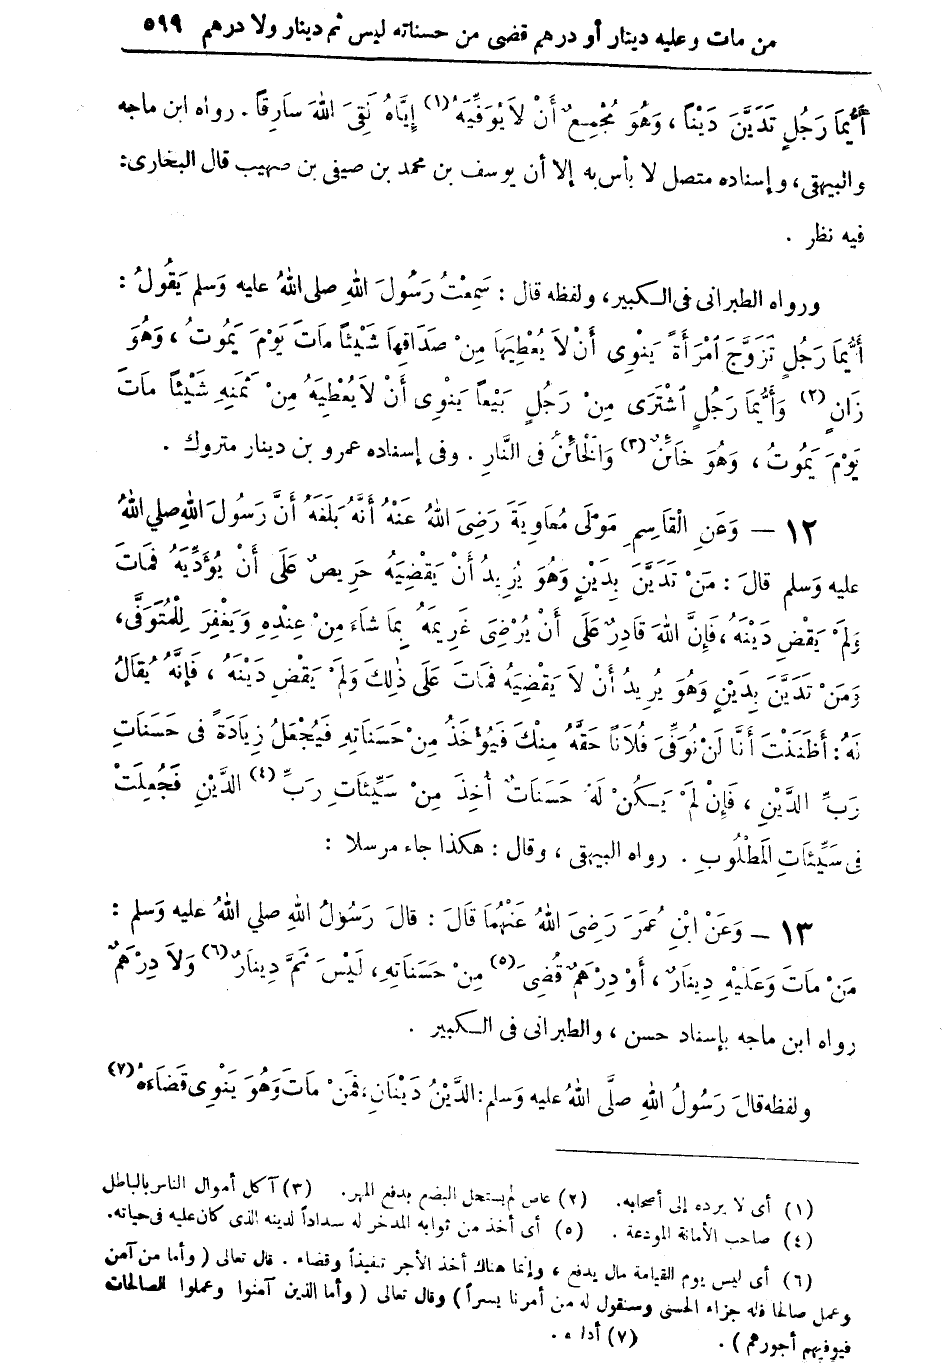 من مات وعليه دينار أو درهم قضى من حسناته ليس ثم دينار ولا درهم ٥٩٩
أَيُّمَا رَجُلٍ تَدَيَّنَ دَيْناً، وَهُوَ مُجْمِعٌ أَنْ لاَ يُوَفِّيَهُ (١) إِيَّاهُ لَقِىَ اللهَ سَارِقاً. رواه ابن ماجه
والبيهقى، وإسناده متصل لا بأس به إلا أن يوسف بن محمد بن صيفى بن صهيب قال البخارى:
فيه نظر.
ورواه الطبرانى فى الكبير، ولفظه قال: سَمِعْتُ رَسُولَ اللهِ صلى اللهُ عليه وَسلم يَقُولُ:
أَيُّمَا رَجُلٍ تَزَوَّجَ امْرَأَةً يَنْوِى أَنْ لاَ يُعْطِيَهَا مِنْ صَدَاقِهَا شَيْئاً مَاتَ يَوْمَ يَمُوتُ، وَهُوَ
زَانٍ (٢) وَأَيُّمَا رَجُلٍ اشْتَرَى مِنْ رَجُلٍ بَيْعاً يَنْوِى أَنْ لاَ يُعْطِيَهُ مِنْ ثَمَنِهِ شَيْئاً مَاتَ
يَوْمَ يَمُوتُ، وَهُوَ خَائِنٌ (٣) وَالْخَائِنُ فى النَّارِ. وفى إسناده عمرو بن دينار متروك.
١٢ — وَعَنِ الْقَاسِمِ مَوْلَى مُعَاوِيَةَ رَضِىَ اللهُ عَنْهُ أَنَّهُ بَلَغَهُ أَنَّ رَسُولَ اللهِ صلى اللهُ
عليه وَسلم قَالَ: مَنْ تَدَيَّنَ بِدَيْنٍ وَهُوَ يُرِيدُ أَنْ يَقْضِيَهُ حَرِيصٌ عَلَى أَنْ يُؤَدِّيَهُ فَمَاتَ
وَلَمْ يَقْضِ دَيْنَهُ، فَإِنَّ اللهَ قَادِرٌ عَلَى أَنْ يُرْضِىَ غَرِيمَهُ بِمَا شَاءَ مِنْ عِنْدِهِ وَيَغْفِرَ لِلْمُتَوَفَّى،
وَمَنْ تَدَيَّنَ بِدَيْنٍ وَهُوَ يُرِيدُ أَنْ لاَ يَقْضِيَهُ فَمَاتَ عَلَى ذٰلِكَ وَلَمْ يَقْضِ دَيْنَهُ، فَإِنَّهُ يُقَالُ
لَهُ: أَظَنَنْتَ أَنَّا لَنْ نُوَفِّىَ فُلاَناً حَقَّهُ مِنْكَ فَيُؤْخَذُ مِنْ حَسَنَاتِهِ فَيُجْعَلُ زِيَادَةً فى حَسَنَاتِ
رَبِّ الدَّيْنِ، فَإِنْ لَمْ يَكُنْ لَهُ حَسَنَاتٌ أُخِذَ مِنْ سَيِّئَاتِ رَبِّ (٤) الدَّيْنِ فَجُعِلَتْ
فى سَيِّئَاتِ الْمَطْلُوبِ. رواه البيهقى، وقال: هكذا جاء مرسلا:
١٣ — وَعَنْ ابْنِ عُمَرَ رَضِىَ اللهُ عَنْهُمَا قَالَ: قَالَ رَسُولُ اللهِ صلى اللهُ عليه وَسلم:
مَنْ مَاتَ وَعَلَيْهِ دِينَارٌ، أَوْ دِرْهَمٌ قُضِىَ (٥) مِنْ حَسَنَاتِهِ، لَيْسَ ثَمَّ دِينَارٌ (٦) وَلاَ دِرْهَمٌ
رواه ابن ماجه بإسناد حسن، والطبرانى فى الكبير.
ولفظه قالَ رَسُولُ اللهِ صلَّى اللهُ عليه وَسلم: الدَّيْنُ دَيْنَانِ: فَمَنْ مَاتَ وَهُوَ يَنْوِى قَضَاءَهُ (٧)
(١) أى لا يرده إلى أصحابه. (٢) عاص لم يستحل البضع بدفع المهر. (٣) آكل أموال الناس بالباطل
(٤) صاحب الأمانة المودعة. (٥) أى أخذ من ثوابه المدخر له سداداً لدينه الذى كان عليه فى حياته.
(٦) أى ليس يوم القيامة مال يدفع، وإنما هناك أخذ الأجر تنفيذاً وقضاء. قال تعالى (وأما من آمن
وعمل صالحا فله جزاء الحسنى وسنقول له من أمرنا يسراً) وقال تعالى (وأما الذين آمنوا وعملوا الصالحات
فيوفيهم أجورهم). (٧) أداءه.